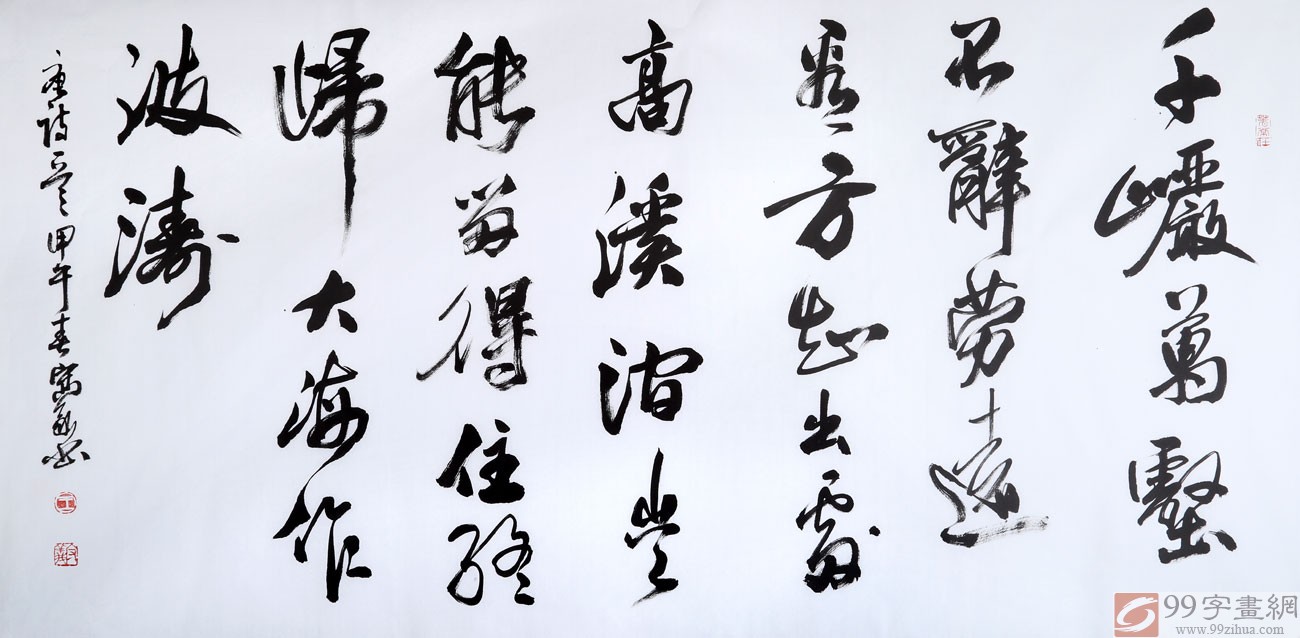 千巖萬壑
不辭勞遠
看方知出處
高溪澗豈
能留得住終
歸大海作
波濤
唐詩一首甲午春書
99字畫網
www.99zihua.com